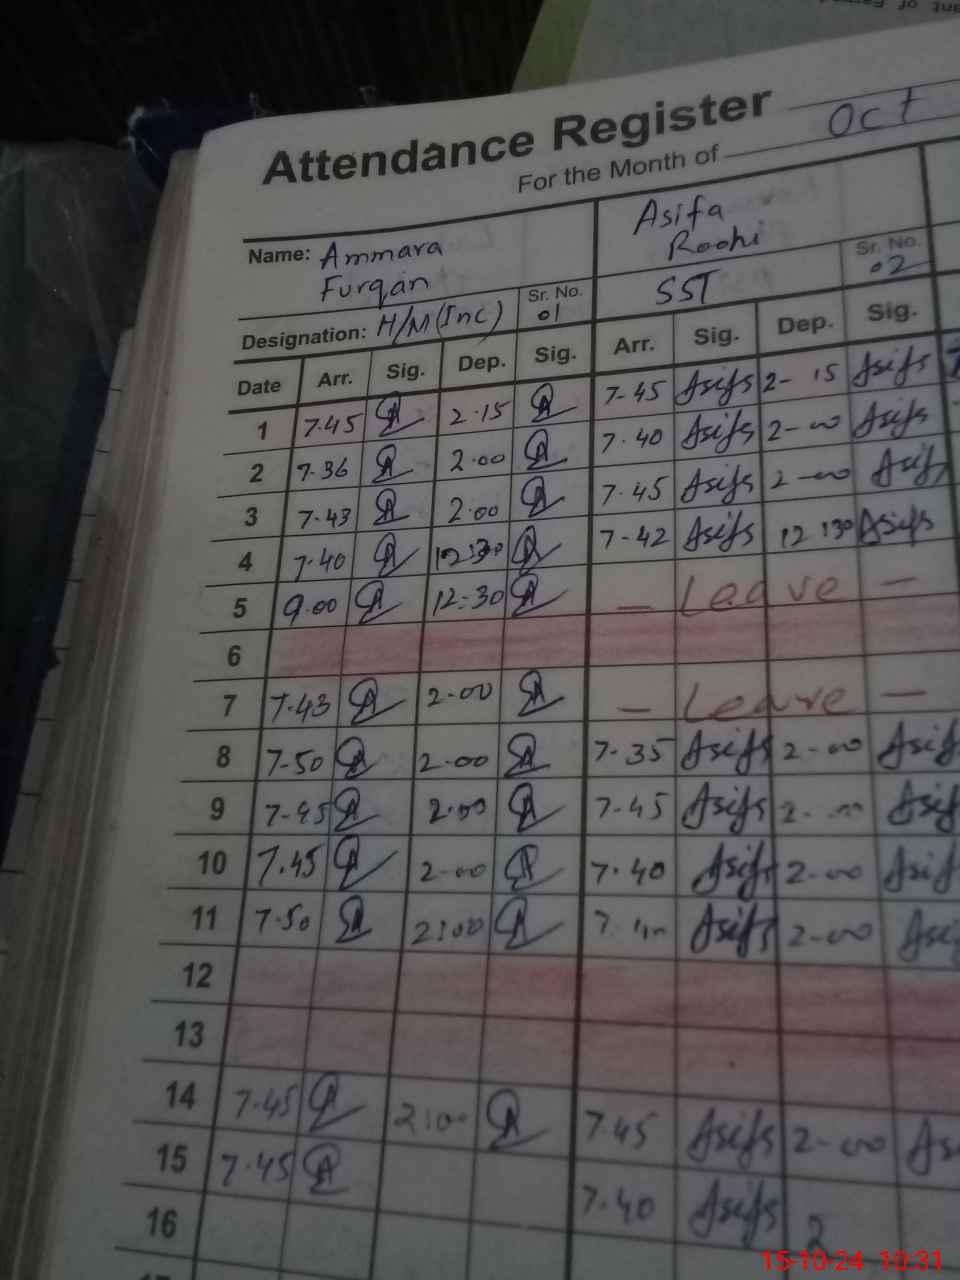 Attendance Register
For the Month of Oct
Name: Ammara Furqan Asifa Roohi
Designation: H/M (Inc) Sr. No. 01 SST Sr. No. 02
Date Arr. Sig. Dep. Sig. Arr. Sig. Dep. Sig.
1 7.45 2.15 7-45 Asifs 2-15 Asifs
2 7.36 2.00 7.40 Asifs 2-00 Asifs
3 7.43 2.00 7.45 Asifs 2-00 Asifs
4 7.40 12:30 7-42 Asifs 12 130 Asifs
5 9.00 12:30 - Leave -
6
7 7.43 2-00 - Leave -
8 7-50 2.00 7-35 Asifs 2-00 Asif
9 7-45 2.00 7-45 Asifs 2-00 Asif
10 7.45 2-00 7.40 Asifs 2-00 Asif
11 7.50 2:00 7. Asifs 2-00 Asi
12
13
14 7.45 2:00 7.45 Asifs 2-00 As
15 7.45 7.40 Asifs 2
16
15-10-24 10:31